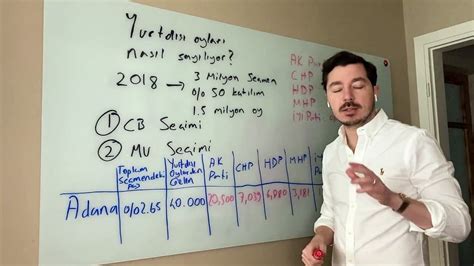 Yurtdışı oyları
nasıl sayılıyor?
2018 → 3 Milyon Seçmen
0/0 50 katılım
1.5 milyon oy
AK Parti
CHP
HDP
MHP
İYİ Parti
① CB Seçimi
② MV Seçimi
Toplam Seçmendeki Yurtdışı Oylardan Gelen AK Parti CHP HDP MHP
Adana 0/02.65 40.000 20,500 7,039 3,181